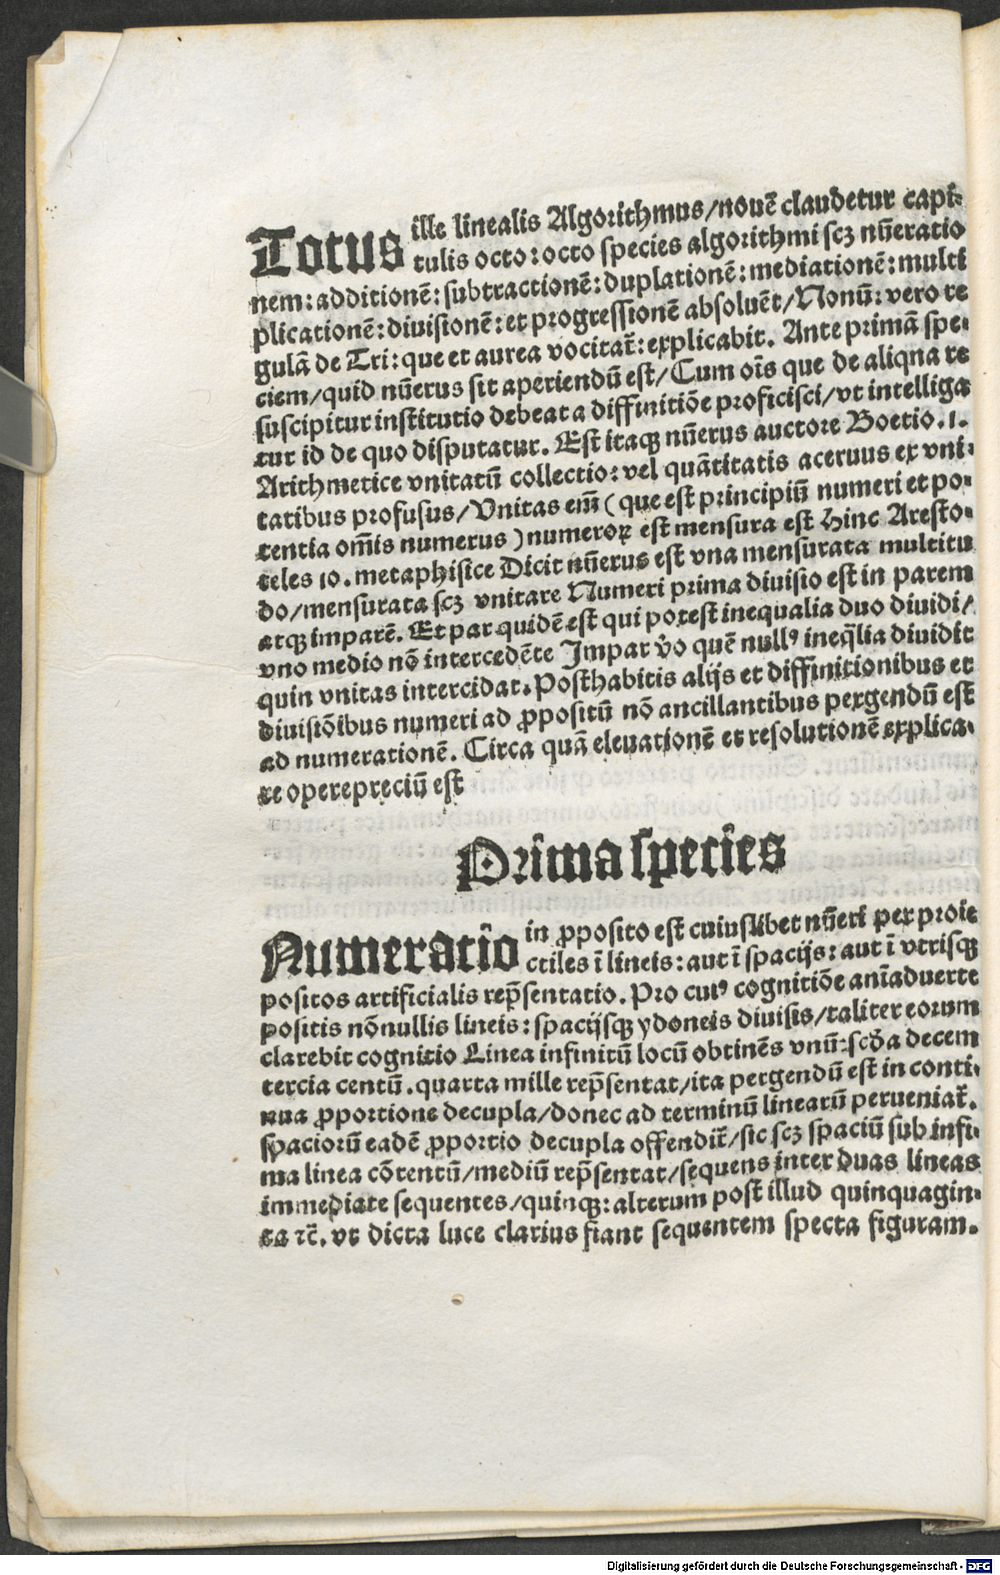 Totus ille linealis Algorithmus/nouē claudetur capi-
tulis octo: octo species algorithmi scꝫ nūeratio
nem: additionē: subtractionē: duplationē: mediationē: multi
plicationē: diuisionē: et progressionē absoluēt/Nonū: vero re
gulā de Tri: que et aurea vocitat᷑: explicabit. Ante primā spe-
ciem/quid nūerus sit aperiendū est/Cum oīs que de aliqna re
suscipitur institutio debeat a diffinitiōe proficisci/vt intelliga
tur id de quo disputatur. Est itaqꝫ nūerus auctore Boetio.1.
Arithmetice vnitatū collectio: vel quātitatis aceruus ex vni-
tatibus profusus/Vnitas em̄ (que est principiū numeri et po-
tentia om̄is numerus) numeroꝝ est mensura est Hinc Aresto-
teles 10. metaphisice Dicit nūerus est vna mensurata multitu
do/mensurata scꝫ vnitare Numeri prima diuisio est in parem
atqꝫ imparē. Et par quidē est qui potest inequalia duo diuidi/
vno medio nō intercedēte Impar v̄o quē nullꝰ ineq̄lia diuidit
quin vnitas intercidat. Posthabitis alijs et diffinitionibus et
diuisiōibus numeri ad ꝓpositū nō ancillantibus pergendū est
ad numerationē. Circa quā eleuationē et resolutionē explica-
re operepreciū est
Prima species
Numeratio in ꝓposito est cuiuslibet nūeri per proie
ctiles ī lineis: aut ī spacijs: aut ī vtrisqꝫ
positos artificialis rep̄sentatio. Pro cuiꝰ cognitiōe anīaduerte
positis nōnullis lineis: spacijsqꝫ ydoneis diuisis/taliter eorum
clarebit cognitio Linea infinitū locū obtinēs vnū: scd̄a decem
tercia centū. quarta mille rep̄sentat/ita pergendū est in conti-
nua ꝓportione decupla/donec ad terminū linearū perueniat᷑.
spaciorū eadē ꝓportio decupla offendit᷑/sic scꝫ spaciū sub infi-
ma linea cōtentū/mediū rep̄sentat/sequens inter duas lineas
immediate sequentes/quinqꝫ: alterum post illud quinquagin-
ta ⁊c̄. vt dicta luce clarius fiant sequentem specta figuram.
Digitalisierung gefördert durch die Deutsche Forschungsgemeinschaft - DFG